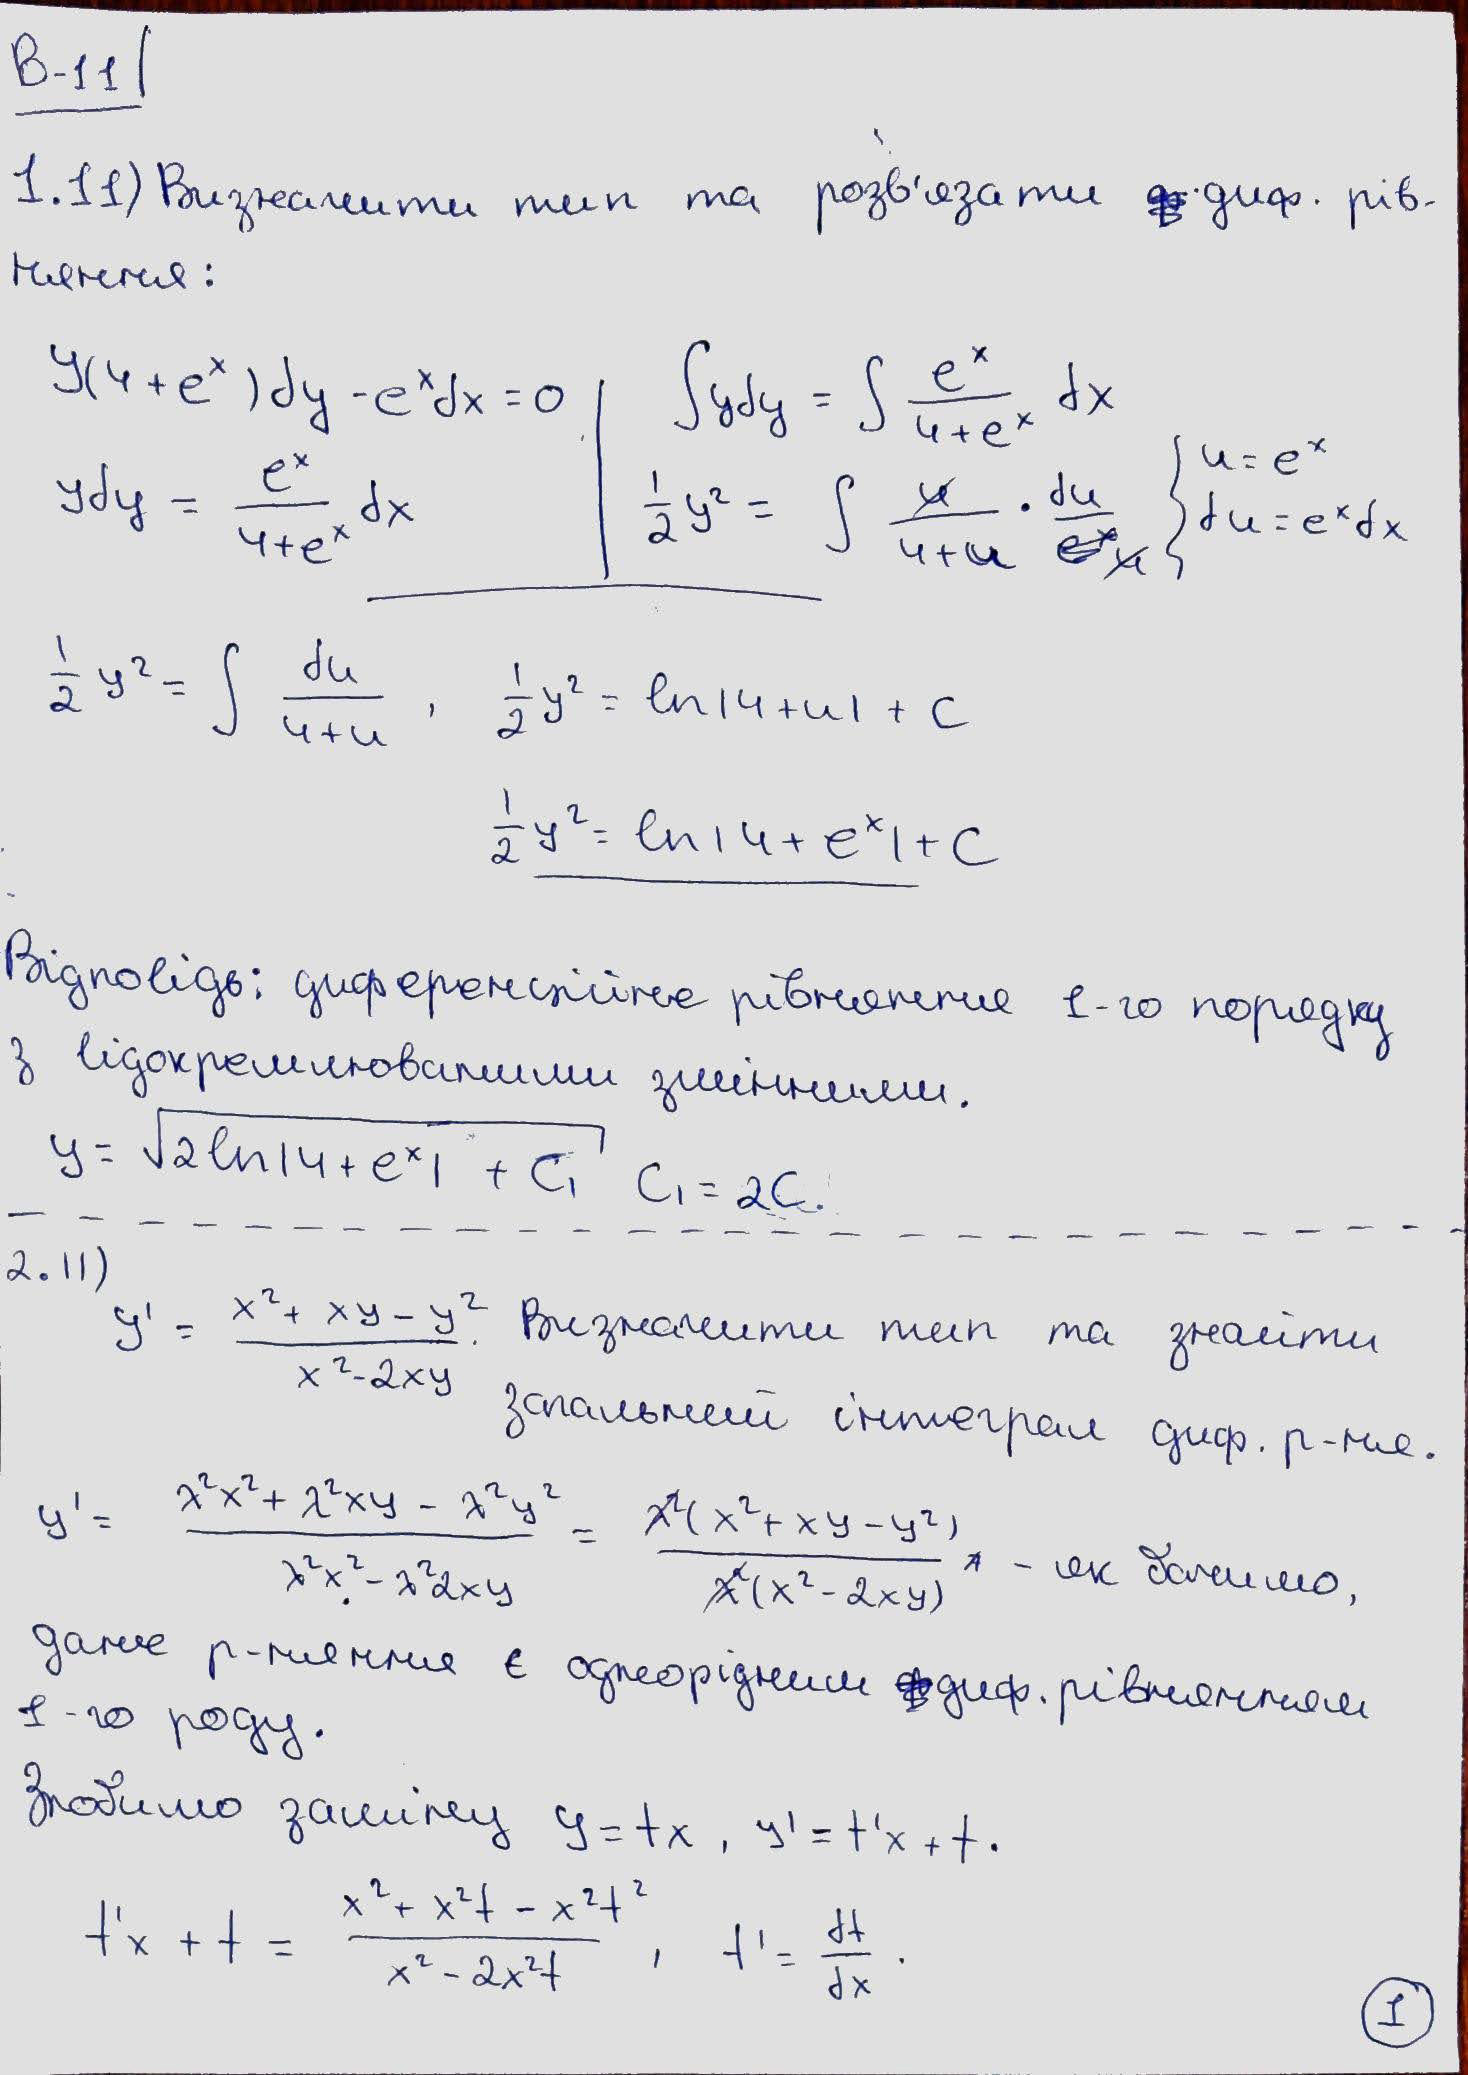 В-11
1.11) Визначити тип та розв'язати диф. рів-
няння:
y(4+eˣ)dy - eˣdx = 0
ydy = eˣ/(4+eˣ) dx
∫ydy = ∫ eˣ/(4+eˣ) dx
1/2 y² = ∫ u/(4+u) · du/u { u = eˣ
du = eˣdx
1/2 y² = ∫ du/(4+u) , 1/2 y² = ln|4+u| + C
1/2 y² = ln|4+eˣ| + C
Відповідь: диференційне рівняння 1-го порядку
з відокремлюваними змінними.
y = √(2ln|4+eˣ| + C₁) C₁ = 2C.
2.11)
y' = (x² + xy - y²)/(x² - 2xy). Визначити тип та знайти
загальний інтеграл диф. р-ня.
y' = (λ²x² + λ²xy - λ²y²)/(λ²x² - λ²2xy) = λ²(x² + xy - y²)/λ²(x² - 2xy) - як бачимо,
дане р-няння є однорідним диф. рівнянням
1-го роду.
Зробимо заміну y = tx, y' = t'x + t.
t'x + t = (x² + x²t - x²t²)/(x² - 2x²t) , t' = dt/dx .
1